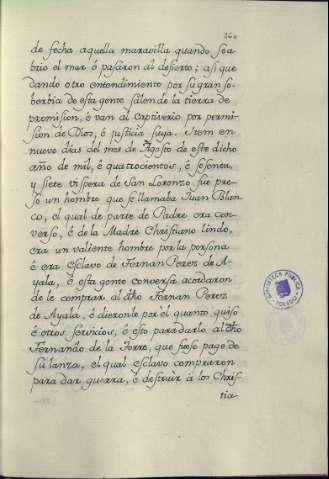 260
de fecha aquella maravilla quando se a-
brió el mar ó pasáron al desierto; asi que
dando otro entendimiento por su gran so-
berbia de esta gente sálen de la tierra de
promision, é van al captiverio por permi-
sion de Dios, é justicia suya. Item en
nueve dias del mes de Agosto de este dicho
año de mil, é quatrocientos, é sesenta,
y siete vispera de San Lorenzo fue pre-
so un hombre que se llamaba Juan Blan-
co, el qual de parte de Padre era con-
verso, é de la Madre Christiano lindo,
era un valiente hombre por la persona
é era esclavo de Fernan Perez de A-
yala, é esta gente conversa acadaron
de le comprar al dho Fernan Perez
de Ayala, é dieronle por él quanto quiso
é otros servicios, é esto para darlo al dho
Fernando de la Torre, que fuese page de
su lanza, el qual esclavo compraron
para dar guerra, é destruir á los Chris-
tia-
BIBLIOTECA PUBLICA
TOLEDO